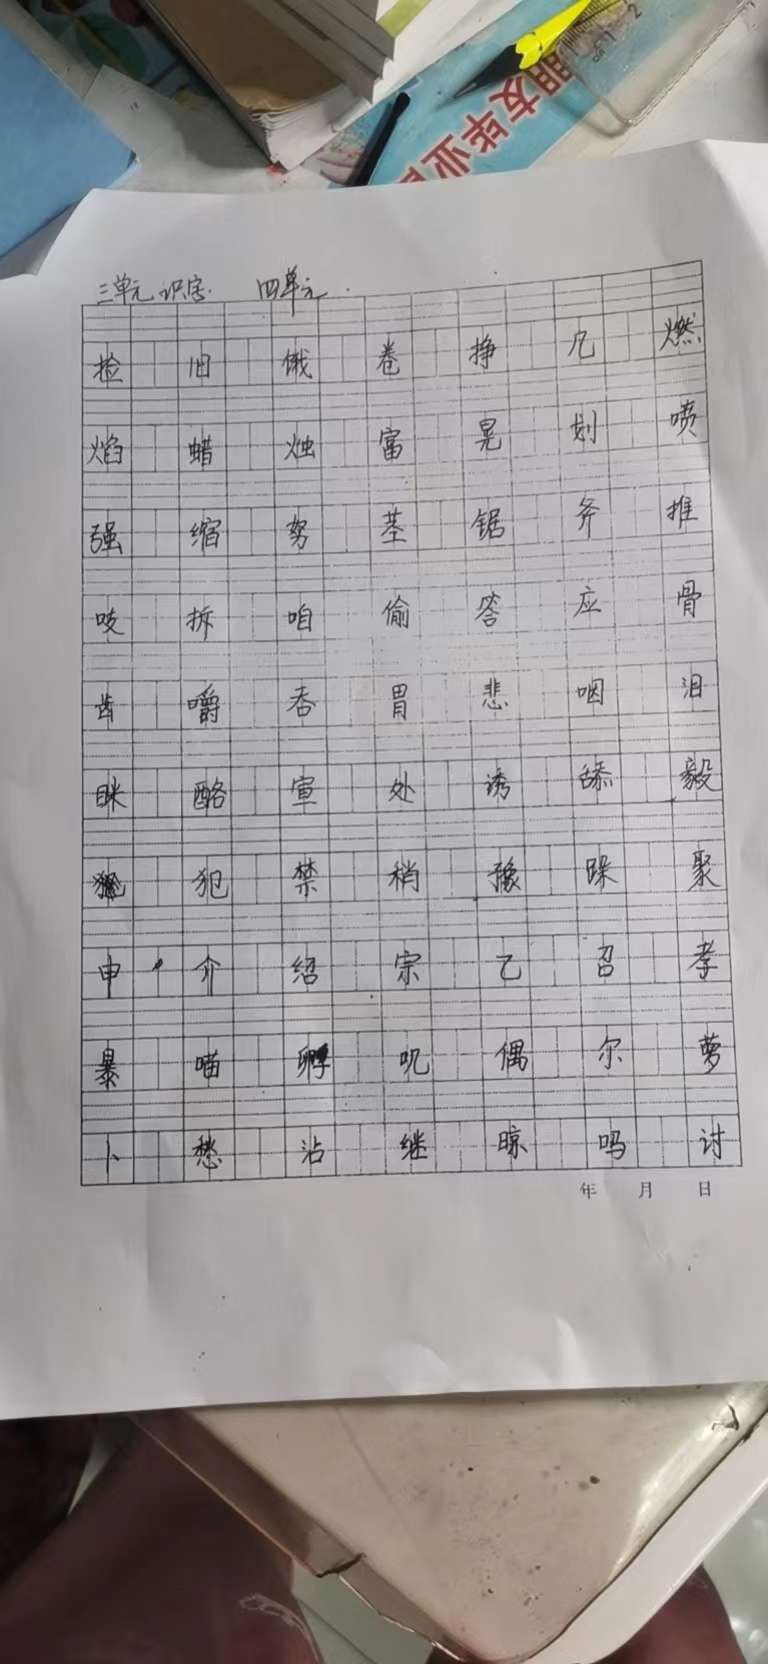 朋友毕业
三单元识字 四单元
捡 旧 饿 卷 挣 凡 燃
焰 蜡 烛 富 晃 划 喷
强 缩 努 茎 锯 斧 推
吱 拆 咱 偷 答 应 骨
齿 嚼 吞 胃 悲 咽 泪
眯 酪 宣 处 诱 舔 毅
犯 禁 稍 豫 跺 聚
申 介 绍 宗 乙 召 孝
暴 喵 孵 叽 偶 尔 萝
卜 愁 沾 继 晾 吗 讨
年 月 日